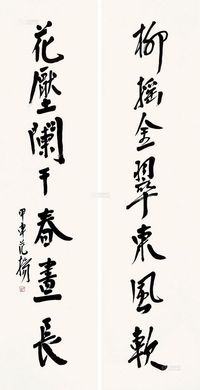 柳搖金翠東風軟
花壓闌干春晝長
甲申范揚